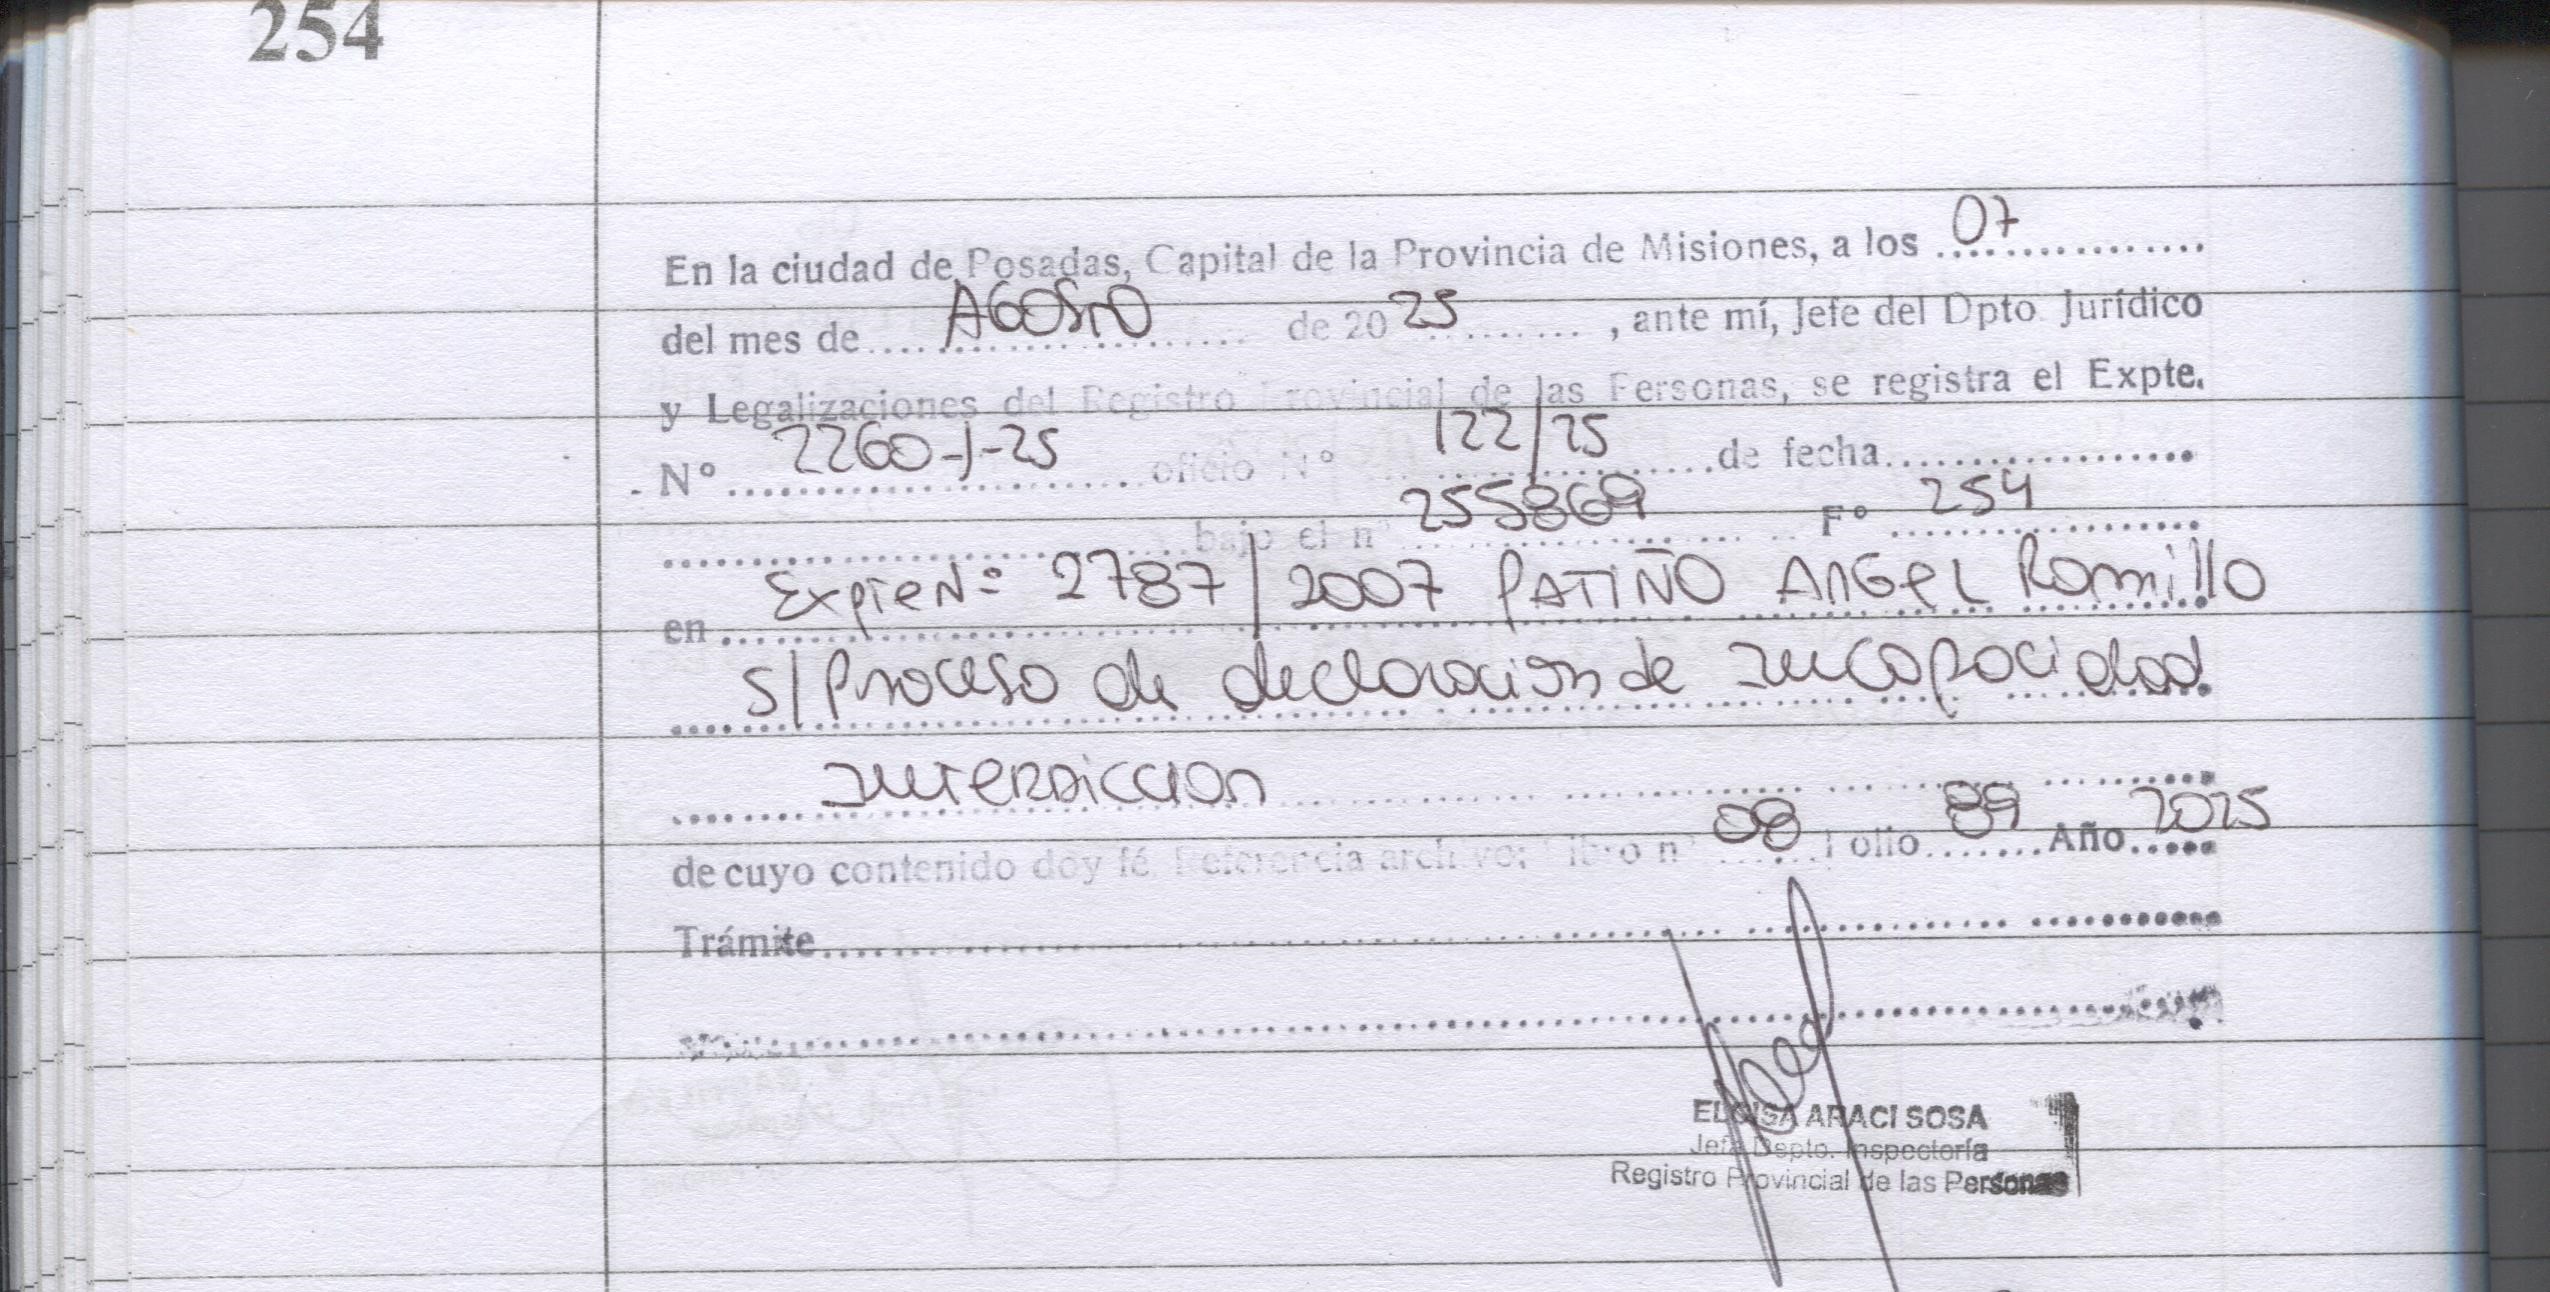 254
En la ciudad de Posadas, Capital de la Provincia de Misiones, a los 07
del mes de AGOSTO de 2025, ante mí, Jefe del Dpto. Jurídico
y Legalizaciones del Registro Provincial de las Personas, se registra el Expte.
Nº 2260-J-25 oficio Nº 122/25 de fecha
bajo el nº 255869 Fº 254
en Expte Nº 2787/2007 PATIÑO ANGEL Romillo
s/ Proceso de declaracion de Incapacidad
INTERDICCION
de cuyo contenido doy fé. Referencia archivo: Libro nº 08 Folio 89 Año 2025
Trámite
ELOISA ARACI SOSA
Jefa Dapto. Inspectoría
Registro Provincial de las Personas